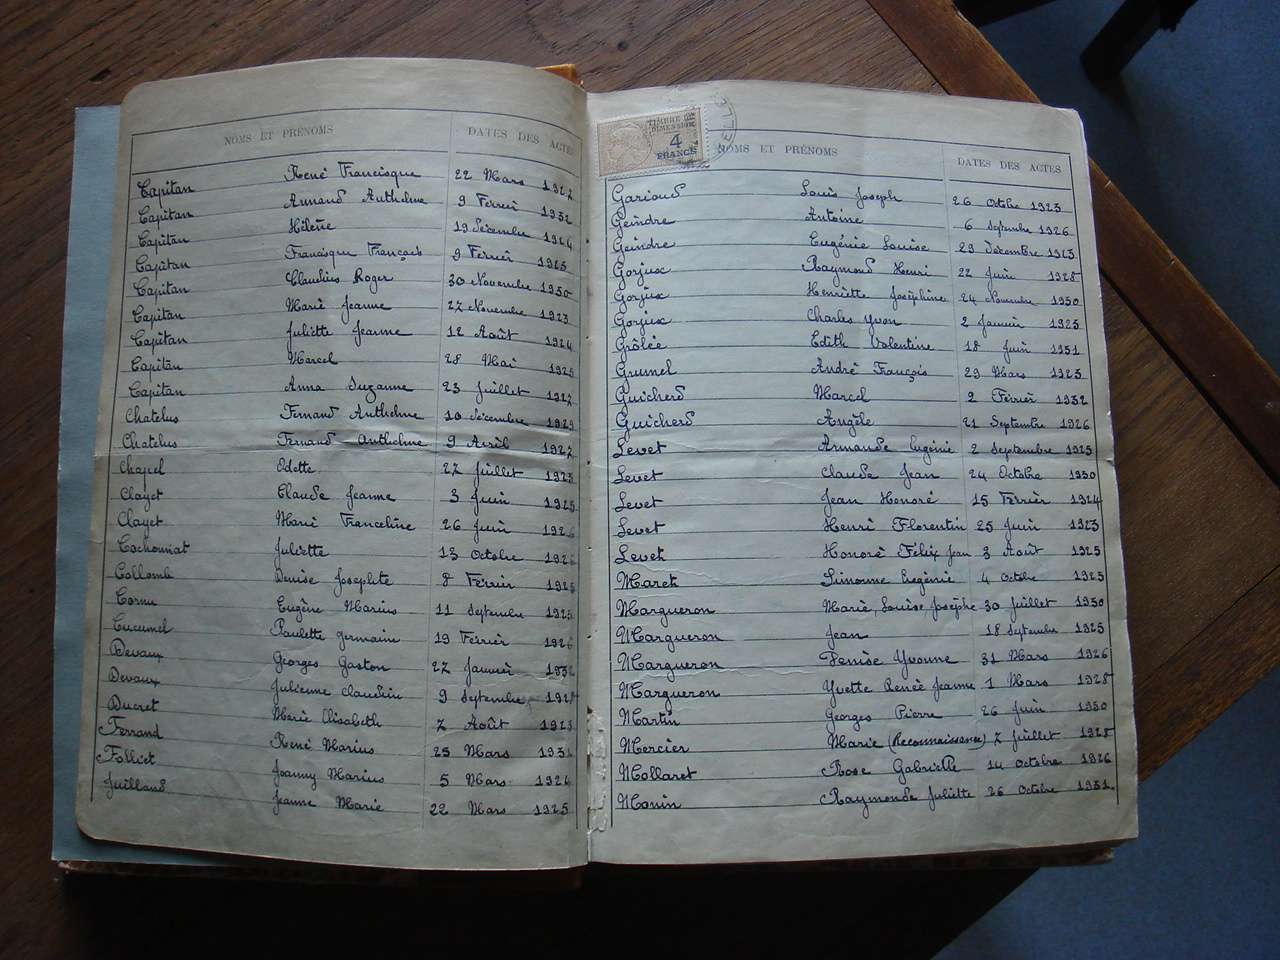 NOMS ET PRÉNOMS DATES DES ACTES
Capitan René Francisque 22 Mars 1927
Capitan Armand Anthelme 9 Février 1932
Capitan Hélène 19 Décembre 1924
Capitan Francisque François 9 Février 1925
Capitan Claudius Roger 30 Novembre 1930
Capitan Marie Jeanne 27 Novembre 1923
Capitan Juliette Jeanne 12 Août 1924
Capitan Marcel 28 Mai
Capitan Anna Suzanne 23 Juillet
Chatelus Fernand Anthelme 10 Décembre
Chatelus Fernand Anthelme 9 Avril 1927
Chapel Odette 27 Juillet
Clayet Claude Jeanne 3 Juin
Clayet Marie Franceline 26 Juin
Juliette 13 Octobre
Collomb Denise Josephte 8 Février
Cornu Eugène Marius 11 Septembre
Cucumel Paulette germaine 19 Février
Devaux Georges Gaston 27 Janvier
Devaux Julienne Claudia 9 Septembre
Ducret Marie Elisabeth 7 Août
Ferrand René Marius 25 Mars
Folliet Joanny Marius 5 Mars
Juilland Jeanne Marie 22 Mars 1925
TIMBRE DE
DIMENSION
4
FRANCS
NOMS ET PRÉNOMS DATES DES ACTES
Garioud Louis Joseph 26 Octbre 1923
Geindre Antoine 6 Septembre 1926
Geindre Eugénie Louise 29 Décembre 1923
Gorjux Raymond Henri 22 Juin 1928
Gorjux Henriette Joséphine 24 Novembre 1930
Gorjux Charles Yvon 2 Janvier 1925
Grôlée Edith Valentine 18 Juin 1931
Grumel André François 29 Mars 1925
Guicherd Marcel 2 Février 1932
Guicherd Angèle 21 Septembre 1926
Levet Armande Eugénie 2 Septembre 1925
Levet Claude Jean 24 Octobre 1930
Levet Jean Honoré 15 Février 1924
Levet Henri Florentin 25 Juin 1923
Levet Honoré Félix Jean 3 Août 1925
Maret Simonne Eugénie 4 Octobre 1925
Margueron Marie, Louise Josèphe 30 Juillet 1930
Margueron Jean 18 Septembre 1925
Margueron Denise Yvonne 31 Mars 1926
Margueron Yvette Renée Jeanne 1 Mars 1928
Martin Georges Pierre 26 Juin 1930
Mercier Marie (Reconnaissance) 7 Juillet 1928
Mollaret Rose Gabrielle 14 Octobre 1926
Monin Raymonde Juliette 26 Octobre 1931.